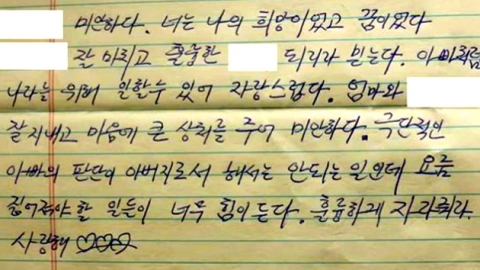 미안하다. 너는 나의 희망이었고 꿈이었다
잘 마치고 훌륭한 되리라 믿는다. 아빠처럼
나라를 위해 일할수 있어 자랑스럽다. 엄마와
잘 지내고 마음에 큰 상처를 주어 미안하다. 극단적인
아빠의 판단이 아버지로서 해서는 안되는 일인데 요즘
짊어져야 할 일들이 너무 힘이 든다. 훌륭하게 자라줘라.
사랑해 ♡♡♡